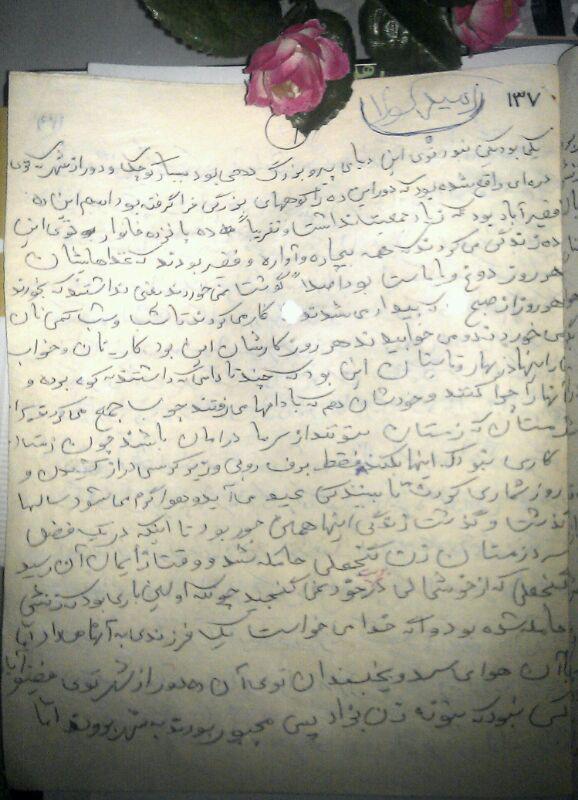 ۱۳۷
یکی بود یکی نبود توی این دنیای پیر و بزرگ دهی بود بسیار کوچک و دور از شهر که توی
دره‌ای واقع شده بود که دور این ده را کوههای بزرگی فرا گرفته بود اسم این ده
فقیر آباد بود که زیاد جمعیت نداشت و تقریباً ده پانزده خانوار توی این
ده زندگی می کردند همه بیچاره و آواره و فقیر بودند که غذاهایشان
هر روز دوغ و یا ماست بود اصلاً گوشت نمی خوردند یعنی نداشتند که بخورند
هر روز از صبح که بیدار می شدند کار می کردند تا شب و شب کمی نان
می خوردند و می خوابیدند هر روز کارشان این بود کار نان و خواب
اینها در بهار و تابستان این بود که چند تا دامی که داشتند به کوه برده و
آنها را چرا کنند و خودشان هم به بیابانها می رفتند چوب جمع می کردند برای
زمستان که زمستان بتوانند از سرما در امان باشند چون زمستان
کاری نبود که اینها بکنند فقط برف روبی و زیر کرسی دراز کشیدن و
روز شماری کردن تا ببینند کی عید می آید و هوا گرم می شود سالها
گذشت و گذشت زندگی اینها همین جور بود تا اینکه در یک فصل
سرد زمستان زن گنجعلی حامله شد و وقت زایمان آن رسید
گنجعلی که از خوشحالی در خود نمی گنجید چونکه اولین باری بود که زنش
حامله شده بود و اگه خدا می خواست یک فرزندی به آنها میداد اما
با آن هوای سرد و یخبندان توی آن ده دور از شهر توی
کسی نبود که بتونه زن بزاد پس مجبور بودند به شهر بروند اما